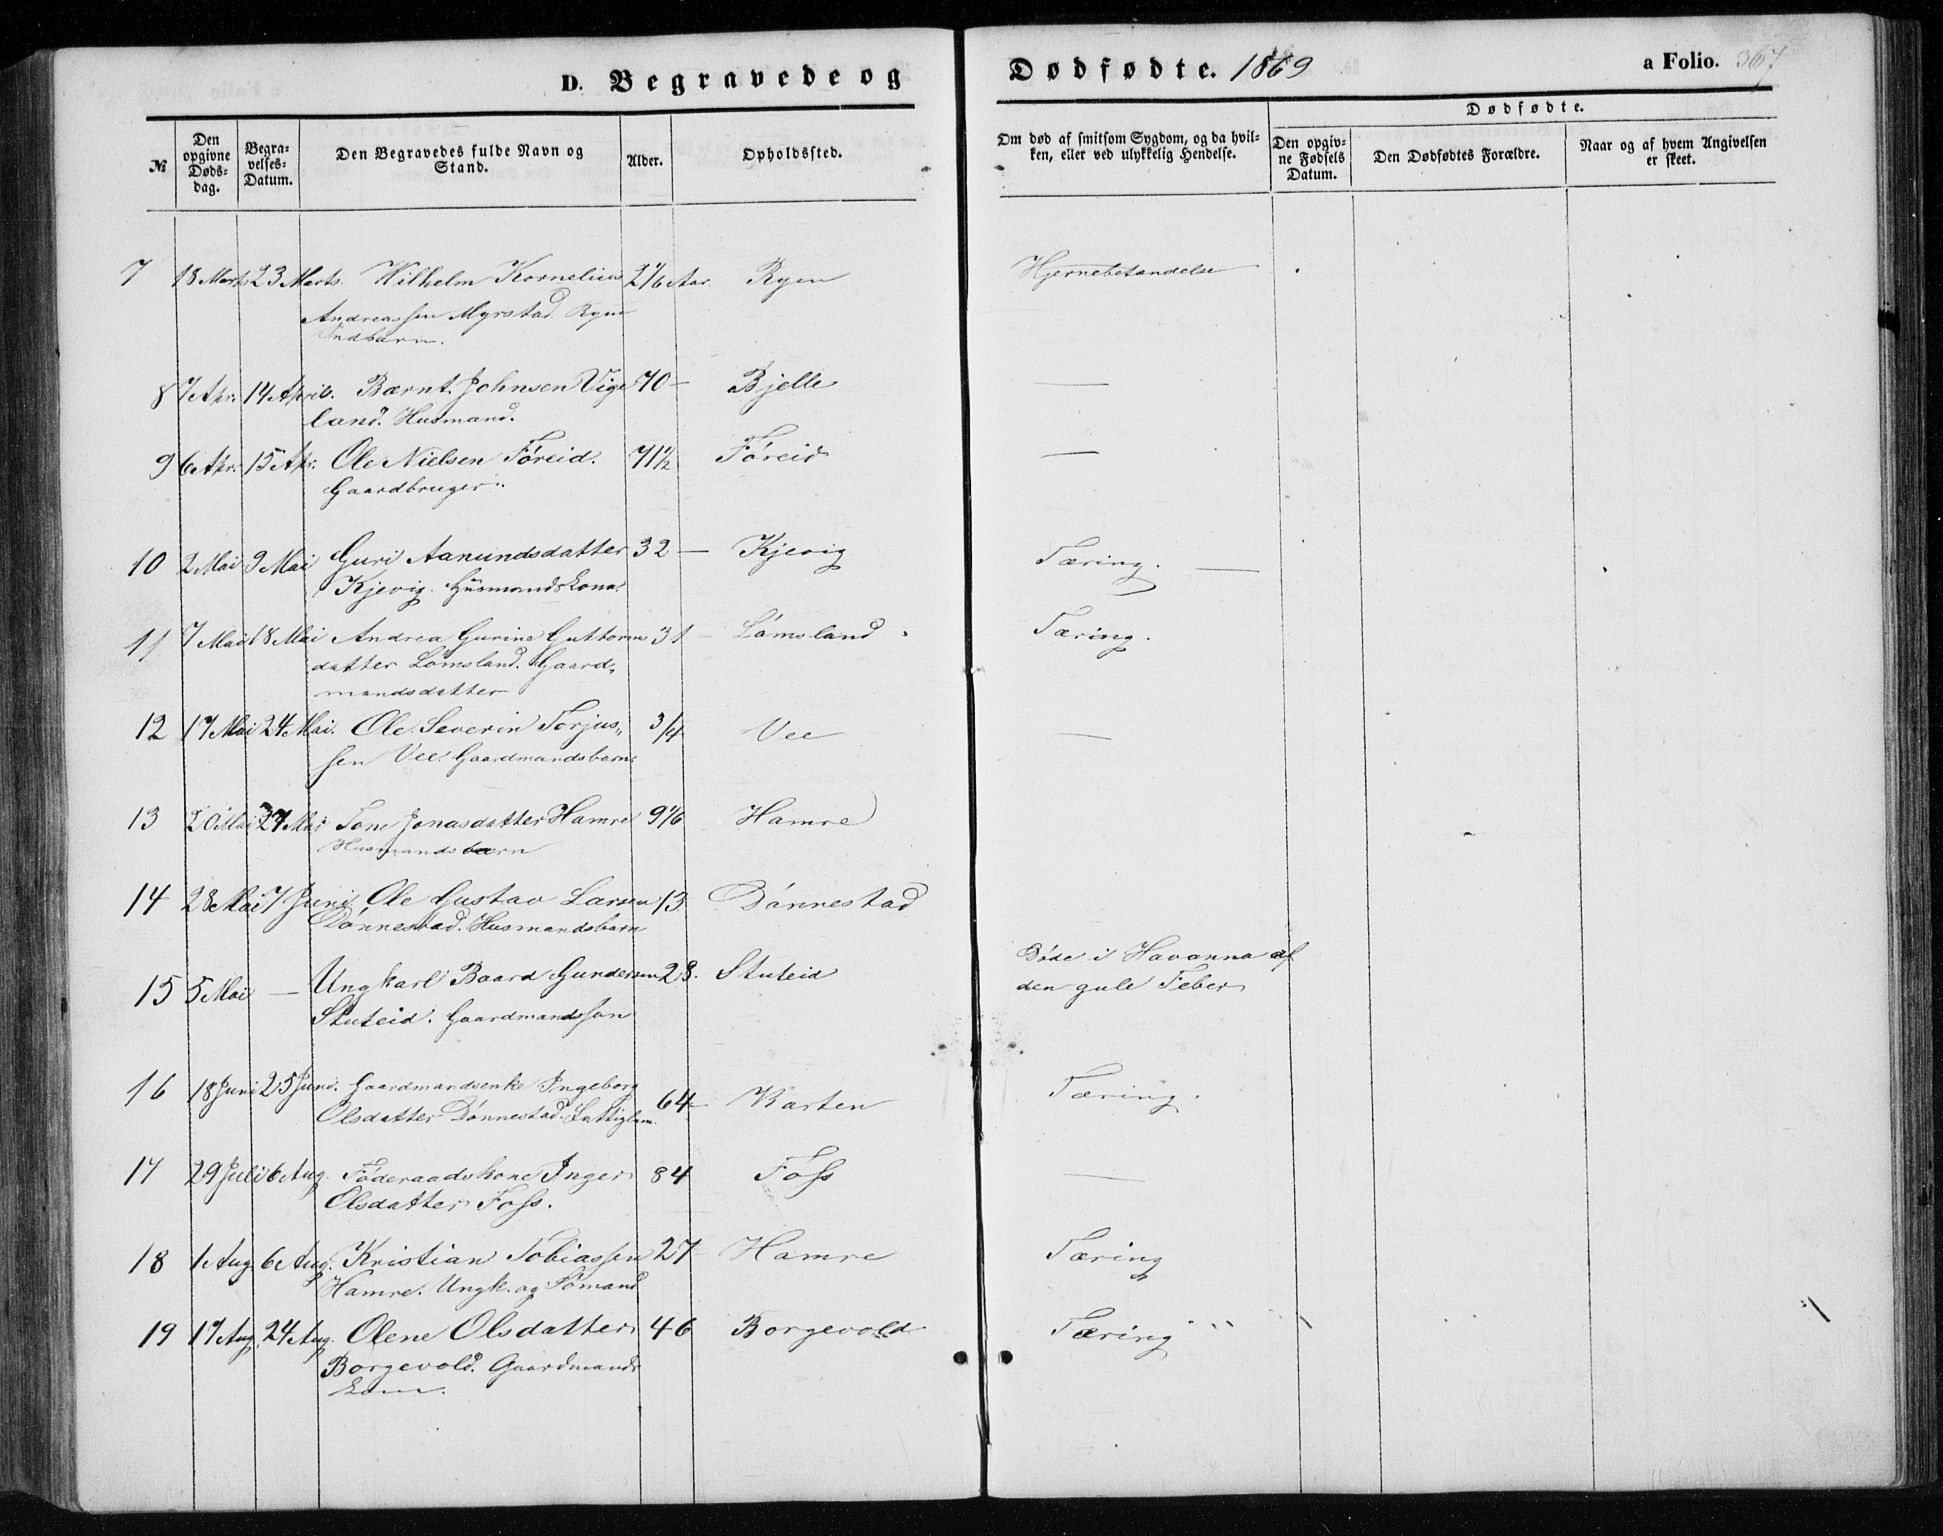 D. Begravede og
Dødfødte. 1869
a Folio. 367
№
Den opgivne Døds-dag.
Begra-velses-Datum.
Den Begravedes fulde Navn og Stand.
Alder.
Opholdssted.
Om død af smitsom Sygdom, og da hvil-ken, eller ved ulykkelig Hendelse.
Dødfødte.
Den opgiv-ne Fødsels Datum.
Den Dødfødtes Forældre.
Naar og af hvem Angivelsen er skeet.
7 18 Marts 23 Marts. Wilhelm Kornelius 2 1/6 Aar. Ryen Hjernebetandelse
Andreassen Myrstad Ryen
Indbarn.
8 7 Apr. 14 April. Bærnt Johnsen Vige 70 — Bjelle —
land. Husmand.
9 6 Apr. 15 Apr. Ole Nielsen Föreid. 71 1/2 Föreid —
Gaardbruger.
10 2 Mai 9 Mai Guri Aanundsdatter 32 — Kjevig Tæring. —
Kjevig. Husmandskona.
11 7 Mai 18 Mai Andrea Gurine Guttorms 31 — Lömsland Tæring.
datter Lömsland. Gaard„
mandsdatter
12 17 Mai 24 Mai. Ole Severin Torjus„ 3/4 Vee —
sen Vee. Gaardmandsbarn.
13 20 Mai 27 Mai Tone Jonasdatter Hamre 9 1/6 Hamre
Husmandsbarn
14 28 Mai 7 Juni Ole Gustav Larsen 13 Dönnestad
Dönnestad. Husmandsbarn
15 5 Mai — Ungkarl Baard Gundersen 28. Stuteid Döde i Havanna af
den gule Feber
Stuteid. Gaardmandssön
16 18 Juni 25 Juni. Gaardmandsenke Ingeborg 64 — Karten Tæring.
Olsdatter Dönnestad. Fattiglem.
17 29 Juli 6 Aug. Föderaadskone Inger 84 Foss —
Olsdatter Foss.
18 1 Aug 6 Aug. Kristian Tobiassen 27 Hamre Tæring
Hamre. Ungk. og Sömand
19 17 Aug. 24 Aug. Olene Olsdatter 46 Borgevold Tæring
Borgevold. Gaardmands
kone.